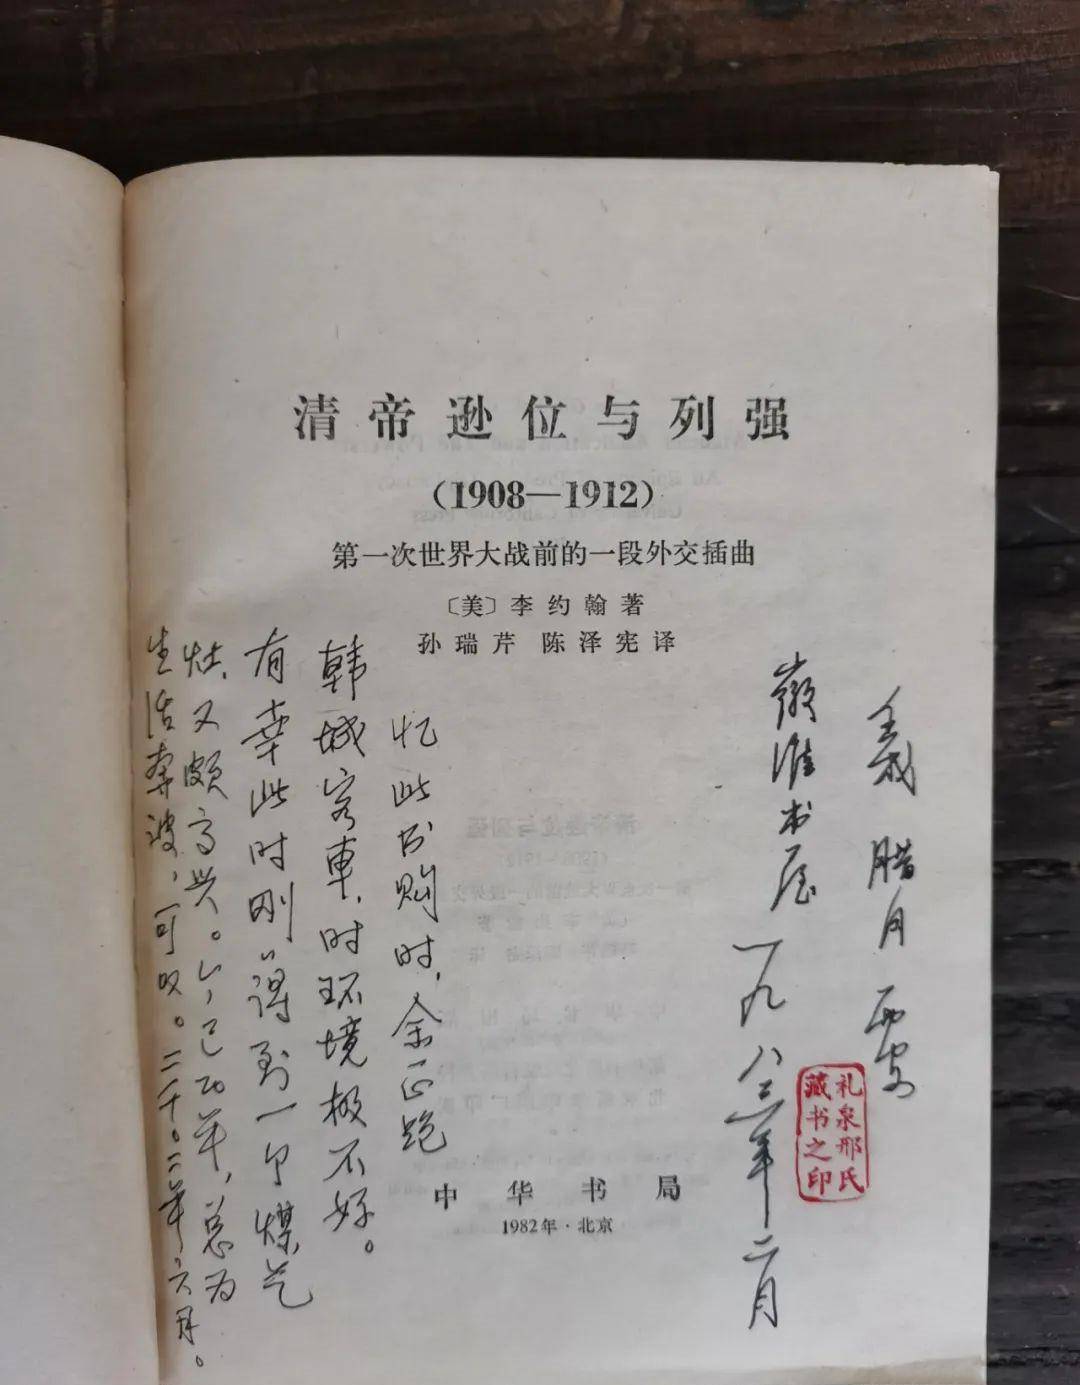 清帝逊位与列强
(1908—1912)
第一次世界大战前的一段外交插曲
〔美〕李约翰著
孙瑞芹 陈泽宪译
中华书局
1982年·北京
壬戌 腊月 西安
书屋 一九八三年二月
礼泉邢氏
藏书之印
忆此书购时,余正跑
韩城客车,时环境极不好。
有幸此时刚“得到一个煤气
灶,又颇高兴。年,总为
生活奔波,可叹。二千〇二年六月。